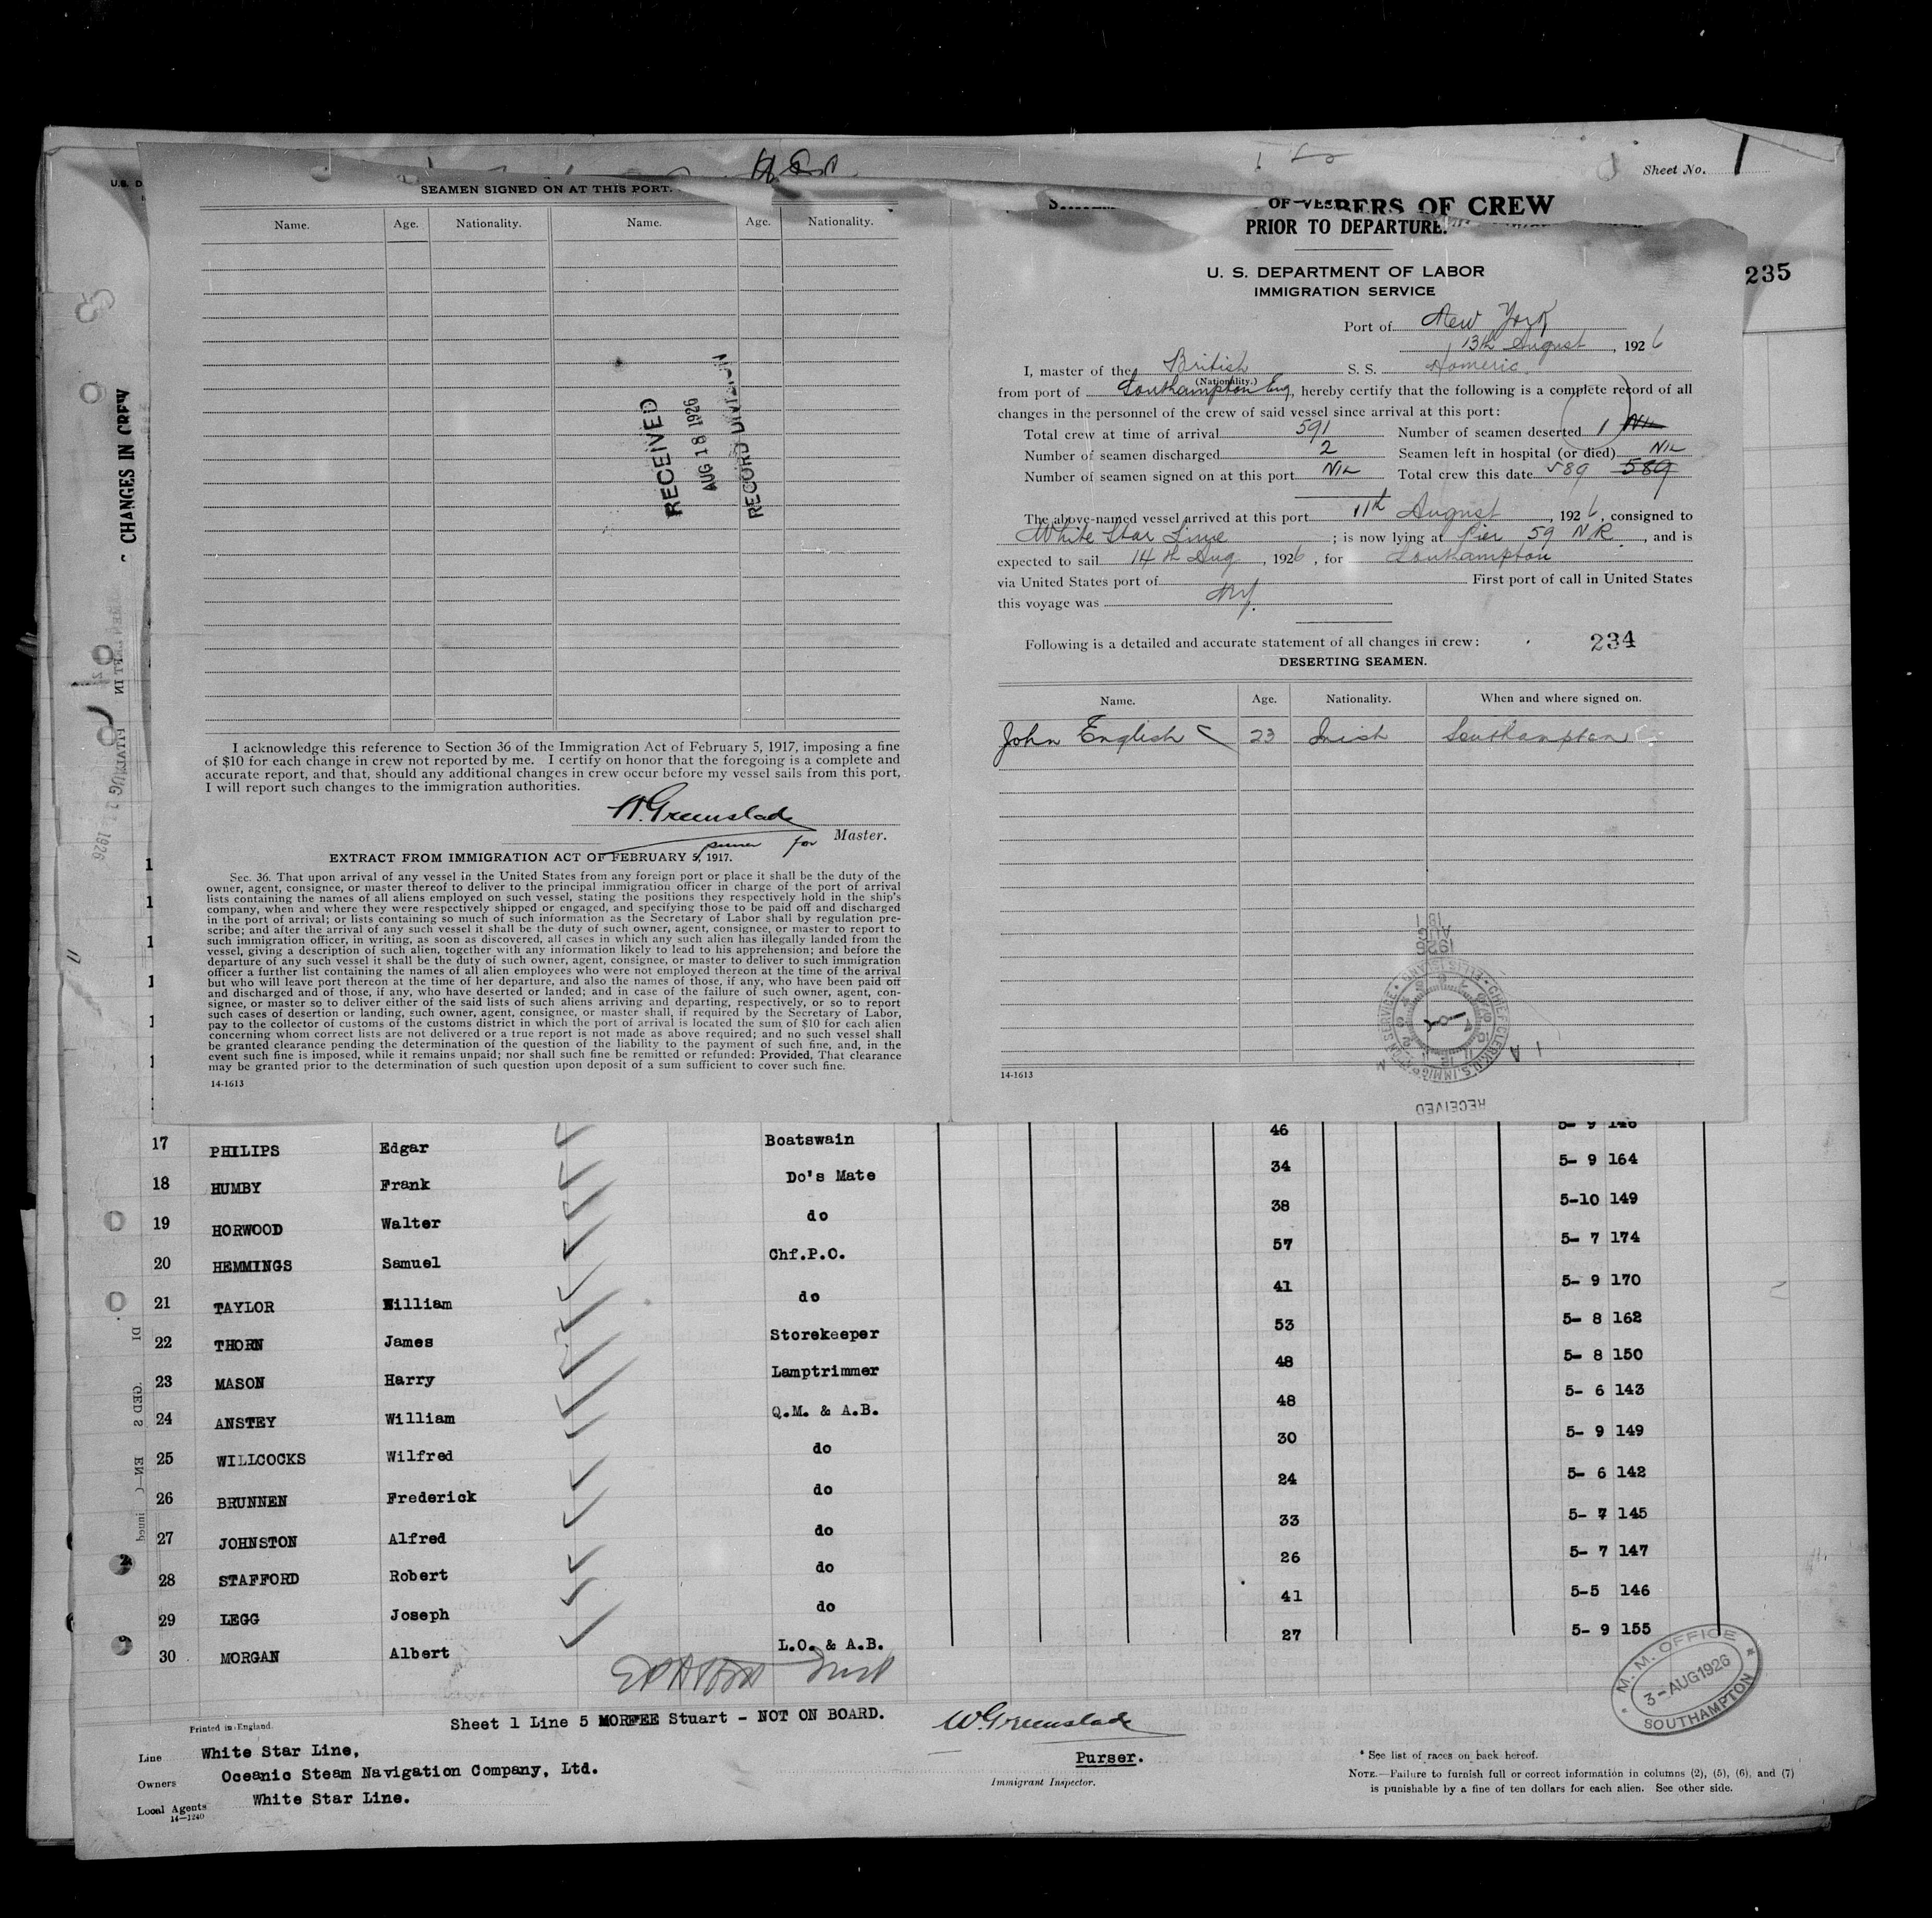 Sheet No. 1
SEAMEN SIGNED ON AT THIS PORT.
Name. Age. Nationality. Name. Age. Nationality.
RECEIVED
AUG 18 1926
RECORD DIVISION
I acknowledge this reference to Section 36 of the Immigration Act of February 5, 1917, imposing a fine
of $10 for each change in crew not reported by me. I certify on honor that the foregoing is a complete and
accurate report, and that, should any additional changes in crew occur before my vessel sails from this port,
I will report such changes to the immigration authorities.
W. Greenslade
purser for Master.
EXTRACT FROM IMMIGRATION ACT OF FEBRUARY 5, 1917.
Sec. 36. That upon arrival of any vessel in the United States from any foreign port or place it shall be the duty of the
owner, agent, consignee, or master thereof to deliver to the principal immigration officer in charge of the port of arrival
lists containing the names of all aliens employed on such vessel, stating the positions they respectively hold in the ship's
company, when and where they were respectively shipped or engaged, and specifying those to be paid off and discharged
in the port of arrival; or lists containing so much of such information as the Secretary of Labor shall by regulation pre-
scribe; and after the arrival of any such vessel it shall be the duty of such owner, agent, consignee, or master to report to
such immigration officer, in writing, as soon as discovered, all cases in which any such alien has illegally landed from the
vessel, giving a description of such alien, together with any information likely to lead to his apprehension; and before the
departure of any such vessel it shall be the duty of such owner, agent, consignee, or master to deliver to such immigration
officer a further list containing the names of all alien employees who were not employed thereon at the time of the arrival
but who will leave port thereon at the time of her departure, and also the names of those, if any, who have been paid off
and discharged and of those, if any, who have deserted or landed; and in case of the failure of such owner, agent, con-
signee, or master so to deliver either of the said lists of such aliens arriving and departing, respectively, or so to report
such cases of desertion or landing, such owner, agent, consignee, or master shall, if required by the Secretary of Labor,
pay to the collector of customs of the customs district in which the port of arrival is located the sum of $10 for each alien
concerning whom correct lists are not delivered or a true report is not made as above required; and no such vessel shall
be granted clearance pending the determination of the question of the liability to the payment of such fine, and, in the
event such fine is imposed, while it remains unpaid; nor shall such fine be remitted or refunded: Provided, That clearance
may be granted prior to the determination of such question upon deposit of a sum sufficient to cover such fine.
14-1613
CHANGES IN CREW
BERS OF CREW
PRIOR TO DEPARTURE.
U. S. DEPARTMENT OF LABOR
IMMIGRATION SERVICE
235
Port of New York
13th August, 1926
I, master of the British S. S. Homeric
(Nationality.)
from port of Southampton Eng, hereby certify that the following is a complete record of all
changes in the personnel of the crew of said vessel since arrival at this port:
Total crew at time of arrival 591 Number of seamen deserted 1 Nil
Number of seamen discharged 2 Seamen left in hospital (or died) Nil
Number of seamen signed on at this port Nil Total crew this date 589 589
The above-named vessel arrived at this port 11th August, 1926, consigned to
White Star Line; is now lying at Pier 59 N.R., and is
expected to sail 14th Aug, 1926, for Southampton
via United States port of First port of call in United States
this voyage was NY.
Following is a detailed and accurate statement of all changes in crew: 234
DESERTING SEAMEN.
Name. Age. Nationality. When and where signed on.
John English 23 Irish Southampton
1926
AUG
18
CHIEF CLERK U.S. IMMIGRATION SERVICE
RECEIVED
14-1613
17 PHILIPS Edgar Boatswain 46 5- 9 146
18 HUMBY Frank Do's Mate 34 5- 9 164
19 HORWOOD Walter do 38 5-10 149
20 HEMMINGS Samuel Chf.P.O. 57 5- 7 174
21 TAYLOR William do 41 5- 9 170
22 THORN James Storekeeper 53 5- 8 162
23 MASON Harry Lamptrimmer 48 5- 8 150
24 ANSTEY William Q.M. & A.B. 48 5- 6 143
25 WILLCOCKS Wilfred do 30 5- 9 149
26 BRUNNEN Frederick do 24 5- 6 142
27 JOHNSTON Alfred do 33 5- 7 145
28 STAFFORD Robert do 26 5- 7 147
29 LEGG Joseph do 41 5-5 146
30 MORGAN Albert L.O. & A.B. 27 5- 9 155
M.M. OFFICE
3-AUG 1926
SOUTHAMPTON
Printed in England.
Sheet 1 Line 5 MORFEE Stuart - NOT ON BOARD.
W. Greenslade
Purser.
Immigrant Inspector.
Line White Star Line,
Owners Oceanic Steam Navigation Company, Ltd.
Local Agents White Star Line.
14-1240
* See list of races on back hereof.
NOTE.—Failure to furnish full or correct information in columns (2), (5), (6), and (7)
is punishable by a fine of ten dollars for each alien. See other side.